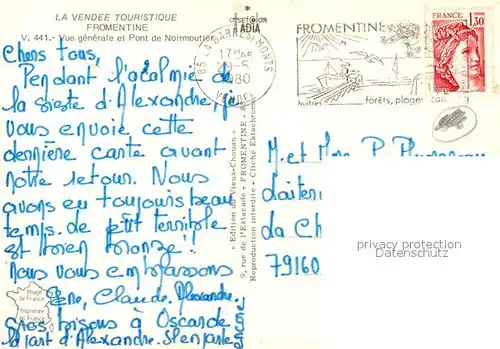 LA VENDEE TOURISTIQUE
FROMENTINE
V. 441.- Vue générale et Pont de Noirmoutier
Chers tous,
Pendant l'accalmie de
la sieste d'Alexandre, je
vous envoie cette
dernière carte avant
notre retour. Nous
avons eu toujours beau
temps. de petit terrible
et bien bronzé!
Nous vous embrassons
Claude. Alexandre.
gros bisous à Oscar de
la part d'Alexandre.
ADIA
85 LA BARRE DE MONTS
17H
-5
1980
VENDEE
FROMENTINE
huîtres
forêts, plages
1,30
« Edition du Vieux-Chouan »
9, rue de l'Estacade - FROMENTINE -
Reproduction interdite - Cliché Ektachrome
M. et Mme P.
laiterie
da Ch
79160
privacy protection
Datenschutz
Image
de France
Imprimée
en France